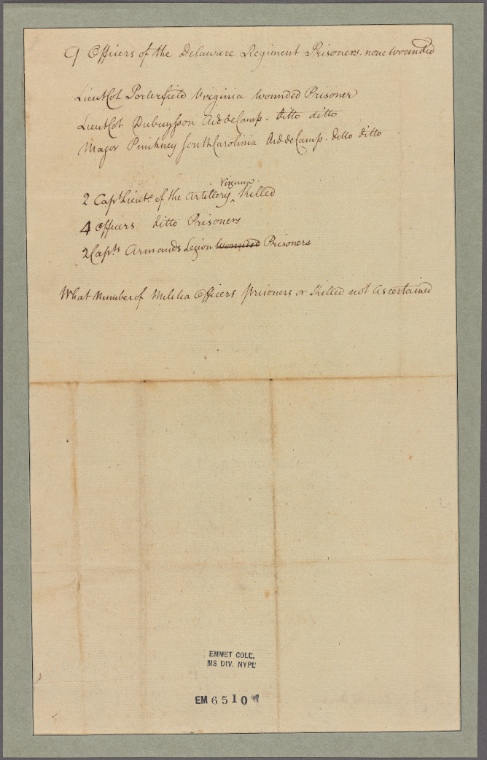 9 Officers of the Delaware Regiment Prisoners. none wounded
Lieut Col Porterfield Virginia wounded Prisoner
Lieut Col Dubuysson Aid de Camp. ditto ditto
Major Pinckney South Carolina Aid de Camp. ditto ditto
Virginia
2 Capt Lieuts of the Artillery ‸ killed
4 Officers ditto Prisoners
2 Capts Armands Legion wounded Prisoners
What Number of Militia Officers Prisoners or killed not ascertained
EMMET COLL.
MS DIV. NYPL
EM 6510